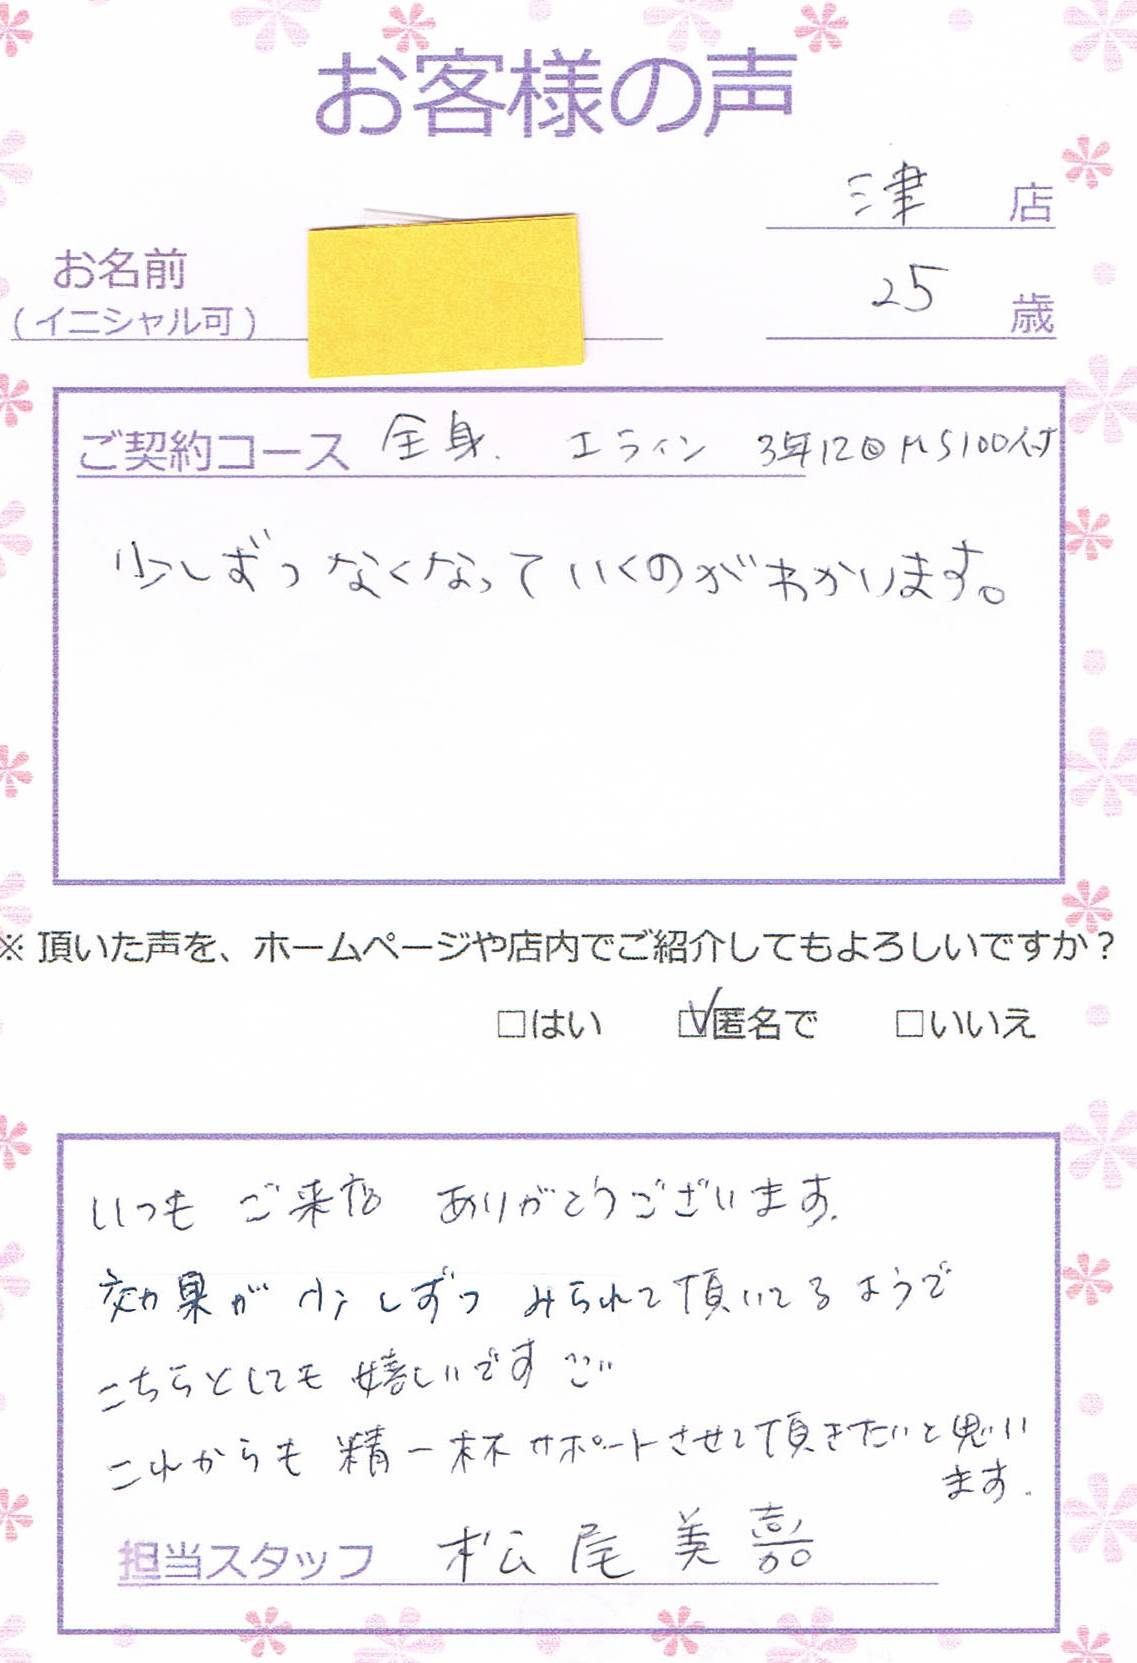 お客様の声
津 店
お名前
(イニシャル可)
25 歳
ご契約コース 全身. エライン 3年12回 MS100付
少しずつなくなっていくのがわかります。
※頂いた声を、ホームページや店内でご紹介してもよろしいですか？
□はい ☑匿名で □いいえ
いつもご来店 ありがとうございます.
効果が少しずつみられて頂いてるようで
こちらとしても嬉しいです
これからも精一杯サポートさせて頂きたいと思い
ます.
担当スタッフ 松尾美嘉